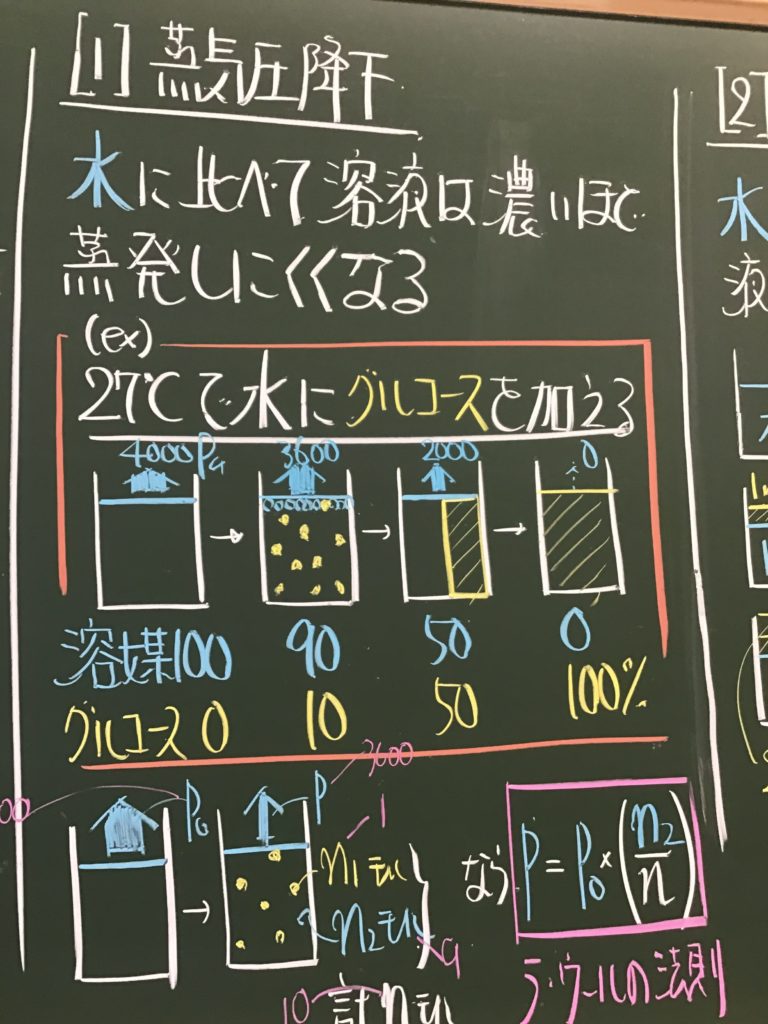 [1] 蒸気圧降下
水に比べて溶液は濃いほど
蒸発しにくくなる
(ex)
27℃で水にグルコースを加える
4000Pa 3600 2000 0
→ → →
溶媒100 90 50 0
グルコース 0 10 50 100%
00 P₀ P 3600
→
n₁モル 1
n₂モル 9
計nモル 10
なら P = P₀×(n₂/n)
ラウールの法則
[2]
水
液